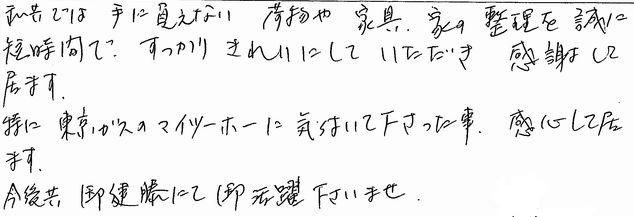 私共では 手に負えない 荷物や 家具、家の 整理を 誠に
短時間で、すっかり きれいにして いただき 感謝して
居ます。
特に 東京ガスの マイツーホーに 気づいて下さった事、感心して居
ます。
今後共 御健勝にて 御活躍 下さいませ。